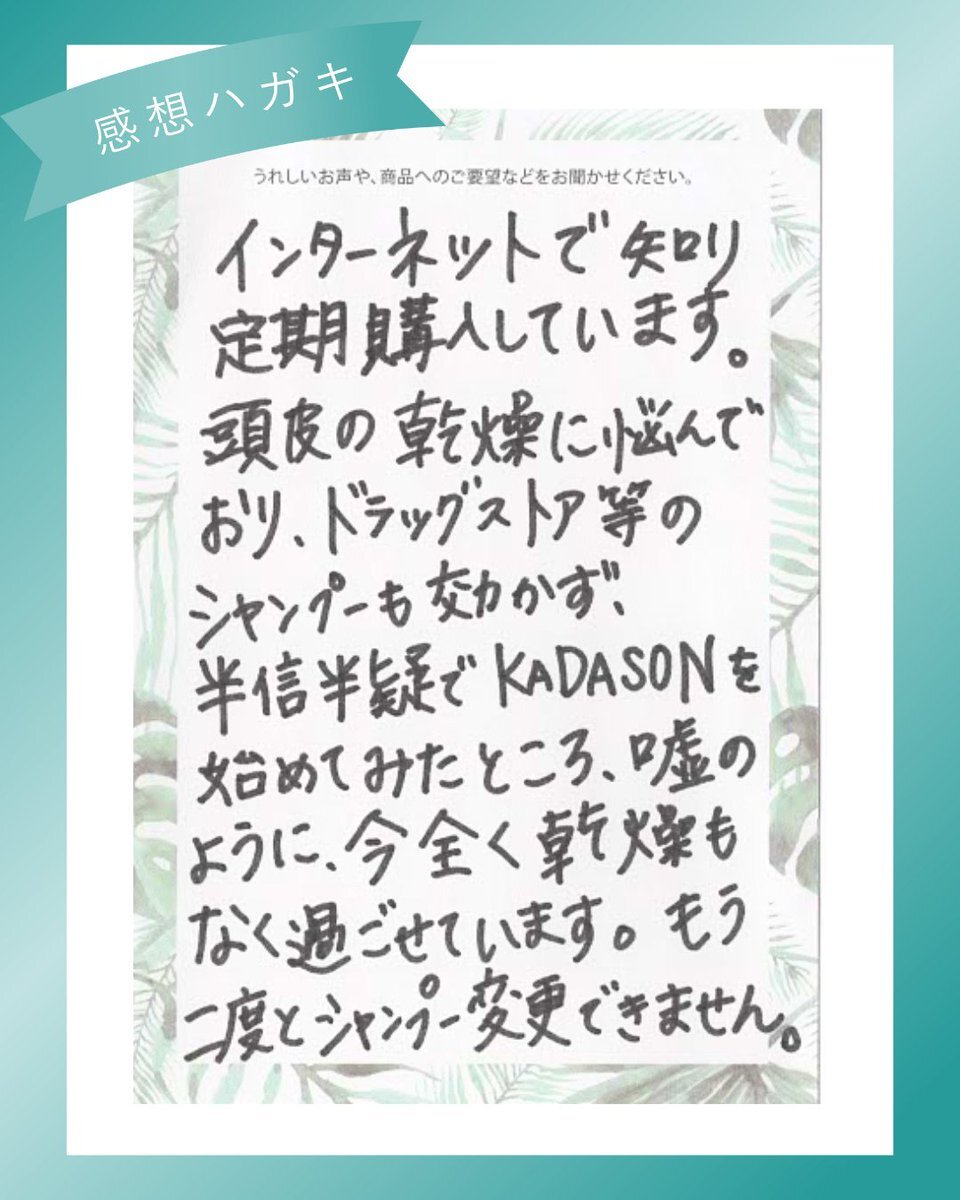 感想ハガキ
うれしいお声や、商品へのご要望などをお聞かせください。
インターネットで知り
定期購入しています。
頭皮の乾燥に悩んで
おり、ドラッグストア等の
シャンプーも効かず、
半信半疑でKADASONを
始めてみたところ、嘘の
ように、今全く乾燥も
なく過ごせています。もう
二度とシャンプー変更できません。